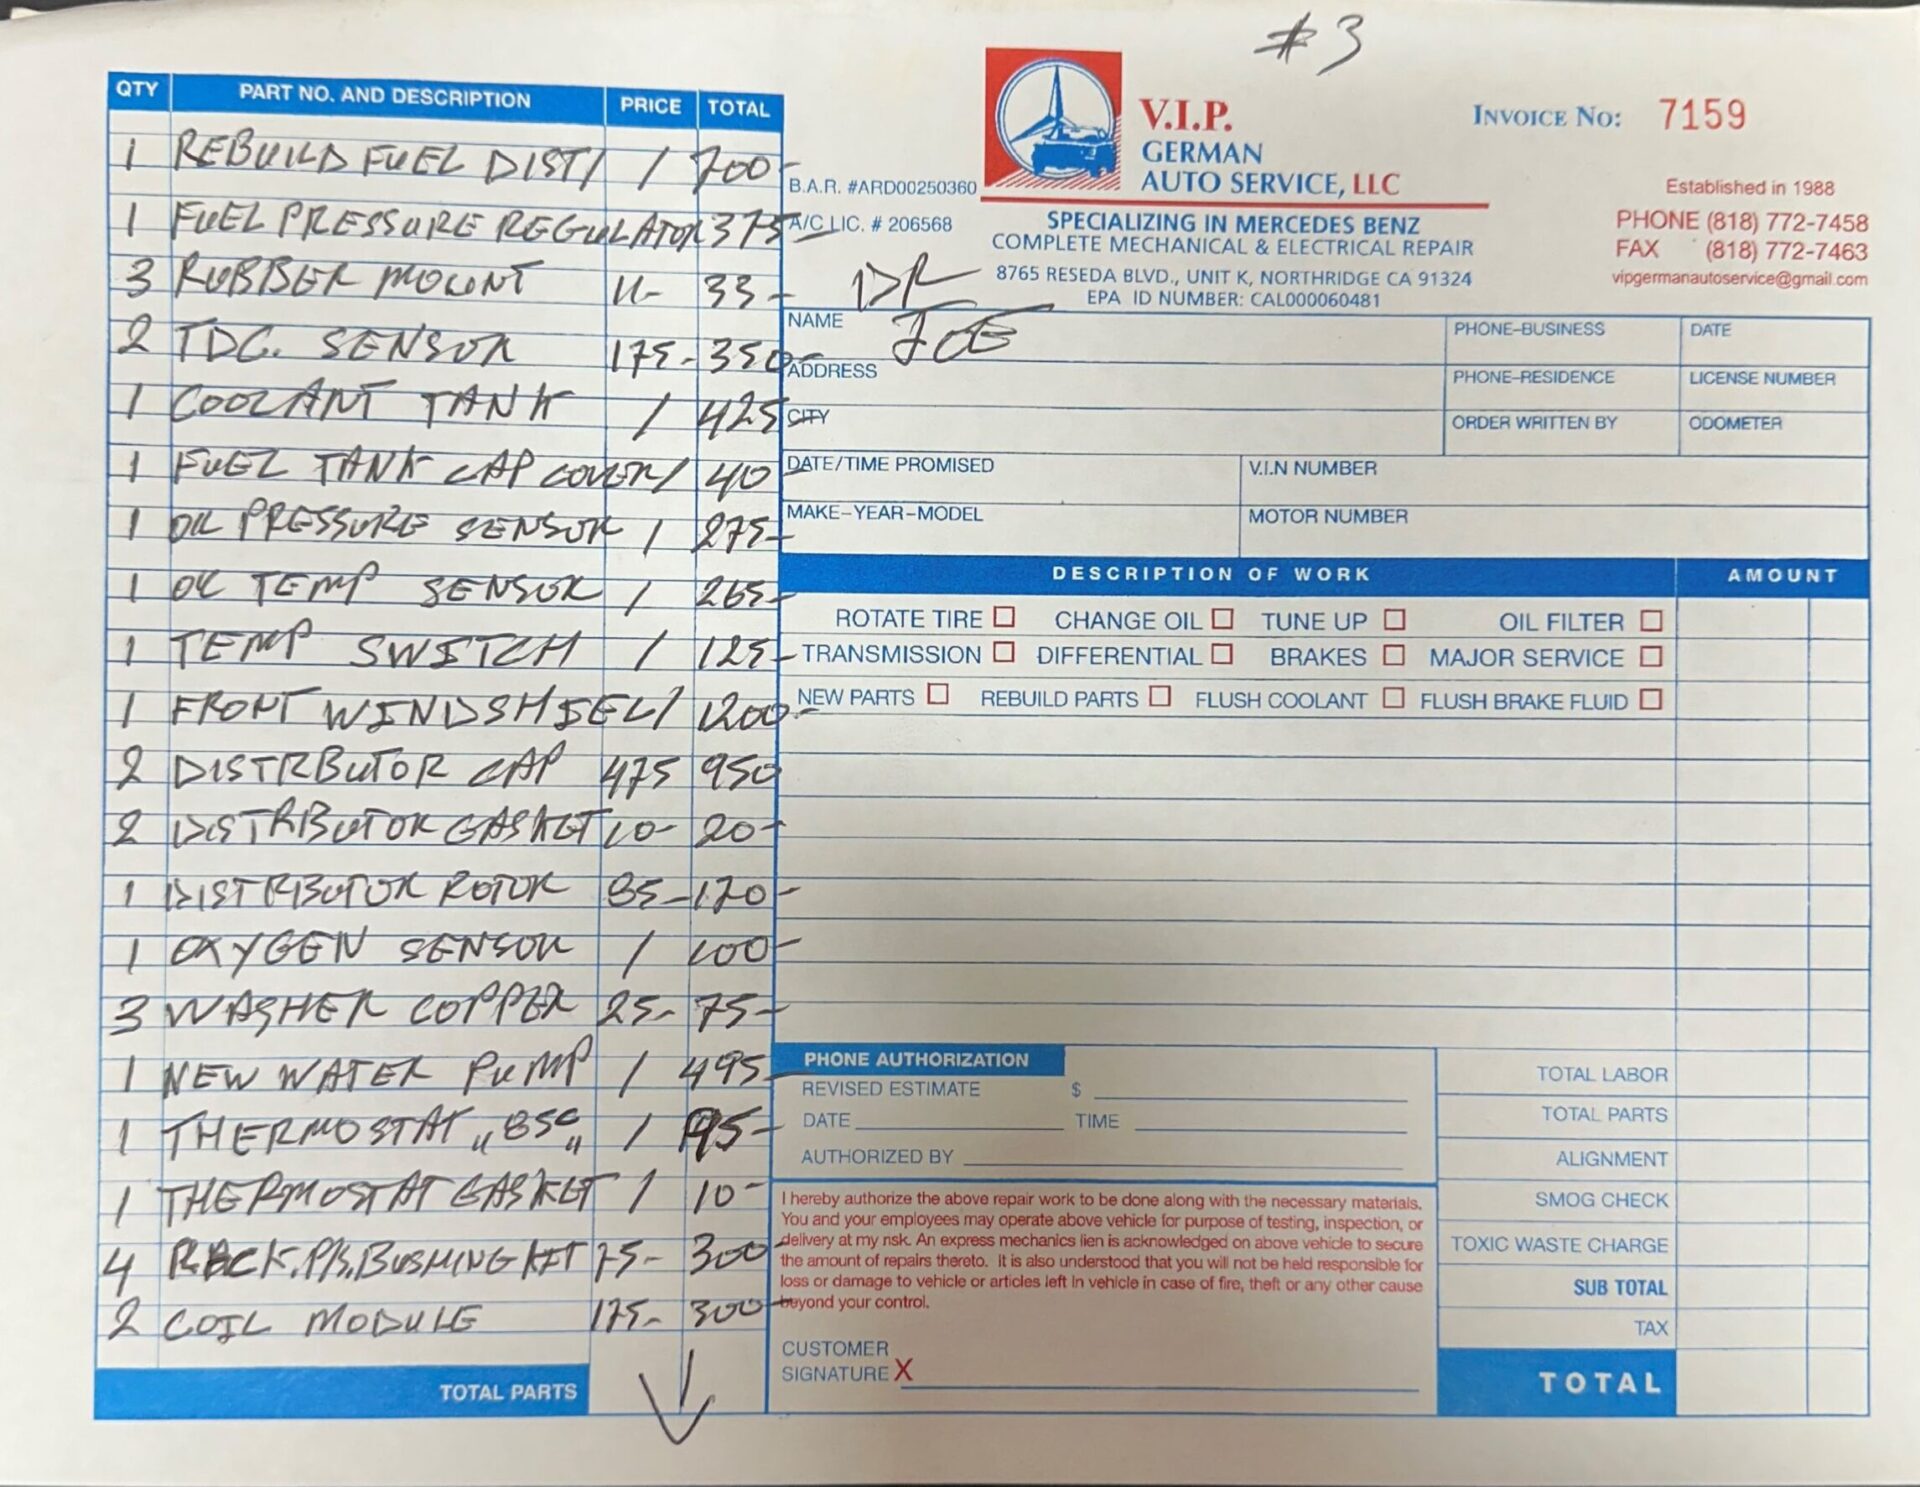 #3
QTY PART NO. AND DESCRIPTION PRICE TOTAL
1 REBUILD FUEL DIST/ / 700-
1 FUEL PRESSURE REGULATOR 375-
3 RUBBER MOUNT 11- 33-
2 TDC. SENSOR 175- 350-
1 COOLANT TANK / 425
1 FUEL TANK CAP COVER / 40
1 OIL PRESSURE SENSOR / 275-
1 OIL TEMP SENSOR / 265-
1 TEMP SWITCH / 125-
1 FRONT WINDSHIEL / 1200-
2 DISTRBUTOR CAP 475 950
2 DISTRIBUTOR GASKET 10- 20-
1 DISTRIBUTOR ROTOR 85- 170-
1 OXYGEN SENSOR / 100-
3 WASHER COPPER 25- 75-
1 NEW WATER PUMP / 495-
1 THERMOSTAT "85C" / 95-
1 THERMOSTAT GASKET / 10-
4 RACK.P/S.BUSHING KIT 75- 300-
2 COIL MODULE 175- 300-
TOTAL PARTS
V.I.P.
GERMAN
AUTO SERVICE, LLC
INVOICE NO: 7159
B.A.R. #ARD00250360
A/C LIC. # 206568
SPECIALIZING IN MERCEDES BENZ
COMPLETE MECHANICAL & ELECTRICAL REPAIR
8765 RESEDA BLVD., UNIT K, NORTHRIDGE CA 91324
EPA ID NUMBER: CAL000060481
Established in 1988
PHONE (818) 772-7458
FAX (818) 772-7463
vipgermanautoservice@gmail.com
DR
NAME JOE PHONE-BUSINESS DATE
ADDRESS PHONE-RESIDENCE LICENSE NUMBER
CITY ORDER WRITTEN BY ODOMETER
DATE/TIME PROMISED V.I.N NUMBER
MAKE-YEAR-MODEL MOTOR NUMBER
DESCRIPTION OF WORK AMOUNT
ROTATE TIRE CHANGE OIL TUNE UP OIL FILTER
TRANSMISSION DIFFERENTIAL BRAKES MAJOR SERVICE
NEW PARTS REBUILD PARTS FLUSH COOLANT FLUSH BRAKE FLUID
PHONE AUTHORIZATION
REVISED ESTIMATE $
DATE TIME
AUTHORIZED BY
I hereby authorize the above repair work to be done along with the necessary materials.
You and your employees may operate above vehicle for purpose of testing, inspection, or
delivery at my risk. An express mechanics lien is acknowledged on above vehicle to secure
the amount of repairs thereto. It is also understood that you will not be held responsible for
loss or damage to vehicle or articles left in vehicle in case of fire, theft or any other cause
beyond your control.
CUSTOMER
SIGNATURE X
TOTAL LABOR
TOTAL PARTS
ALIGNMENT
SMOG CHECK
TOXIC WASTE CHARGE
SUB TOTAL
TAX
TOTAL